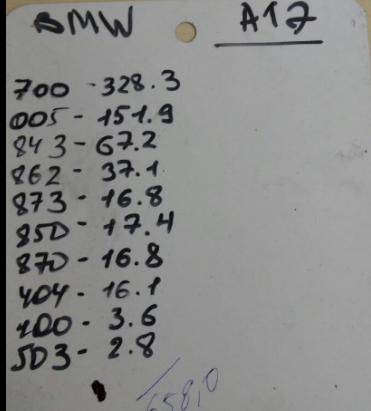 BMW A17
700 - 328.3
005 - 151.9
843 - 67.2
862 - 37.1
873 - 16.8
850 - 17.4
870 - 16.8
404 - 16.1
100 - 3.6
503 - 2.8
658,0